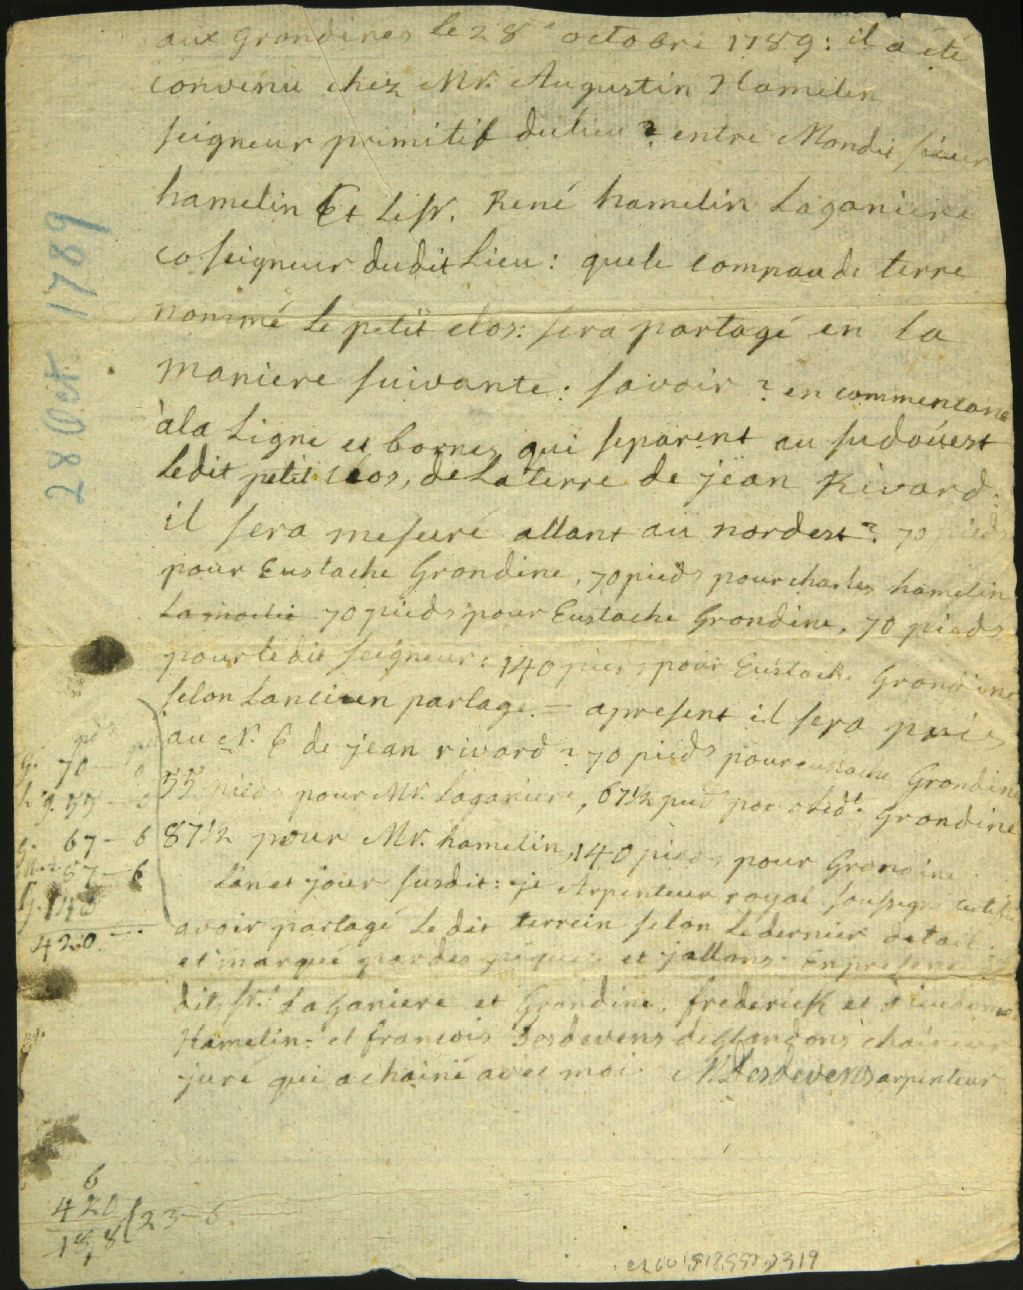 aux grondines le 28e octobre 1789: il a été
convenu chez Mr. Augustin Hamelin
seigneur primitif du lieu ? entre Mondit sieur
hamelin Et Le sr. René hamelin Laganiere
co seigneur dudit Lieu: que le compau de terre
nommé Le petit clos: sera partagé en la
maniere suivante: savoir ? en commencant
à la Ligne et bornes qui separent au sudouest
Ledit petit clos, de La terre de jean Rivard.
il sera mesuré allant au nordest ? 70 pieds
pour Eustache Grondine, 70 pieds pour charles hamelin
70 pieds pour Eustache Grondine, 70 pieds
pour le dit seigneur: 140 pieds pour Eustache Grondine
selon Lancien partage. = apresent il sera pris
au N. E de jean rivard ? 70 pieds pour eustache Grondine
55 pieds pour Mr. Laganiere, 67 1/2 pieds pour Ledt. Grondine
87 1/2 pour Mr. hamelin, 140 pieds pour Grondine
Lan et jour susdit: je Arpenteur royal soussigné certifie
avoir partagé Le dit terrein selon Le dernier detail
et marqué par des piquets et jallons. En presence
dits srs. Laganiere et Grondine, frederick et
Hamelin. et francois Desdevens deglandons chaineur
juré qui a chainé avec moi. Desdevens arpenteur
28 Oct 1789
pds po
G. 70 - 0
Lg. 55 - 0
G. 67 - 6
87 - 6
G. 140
420 --
6
420 { 23 - 6
18,8